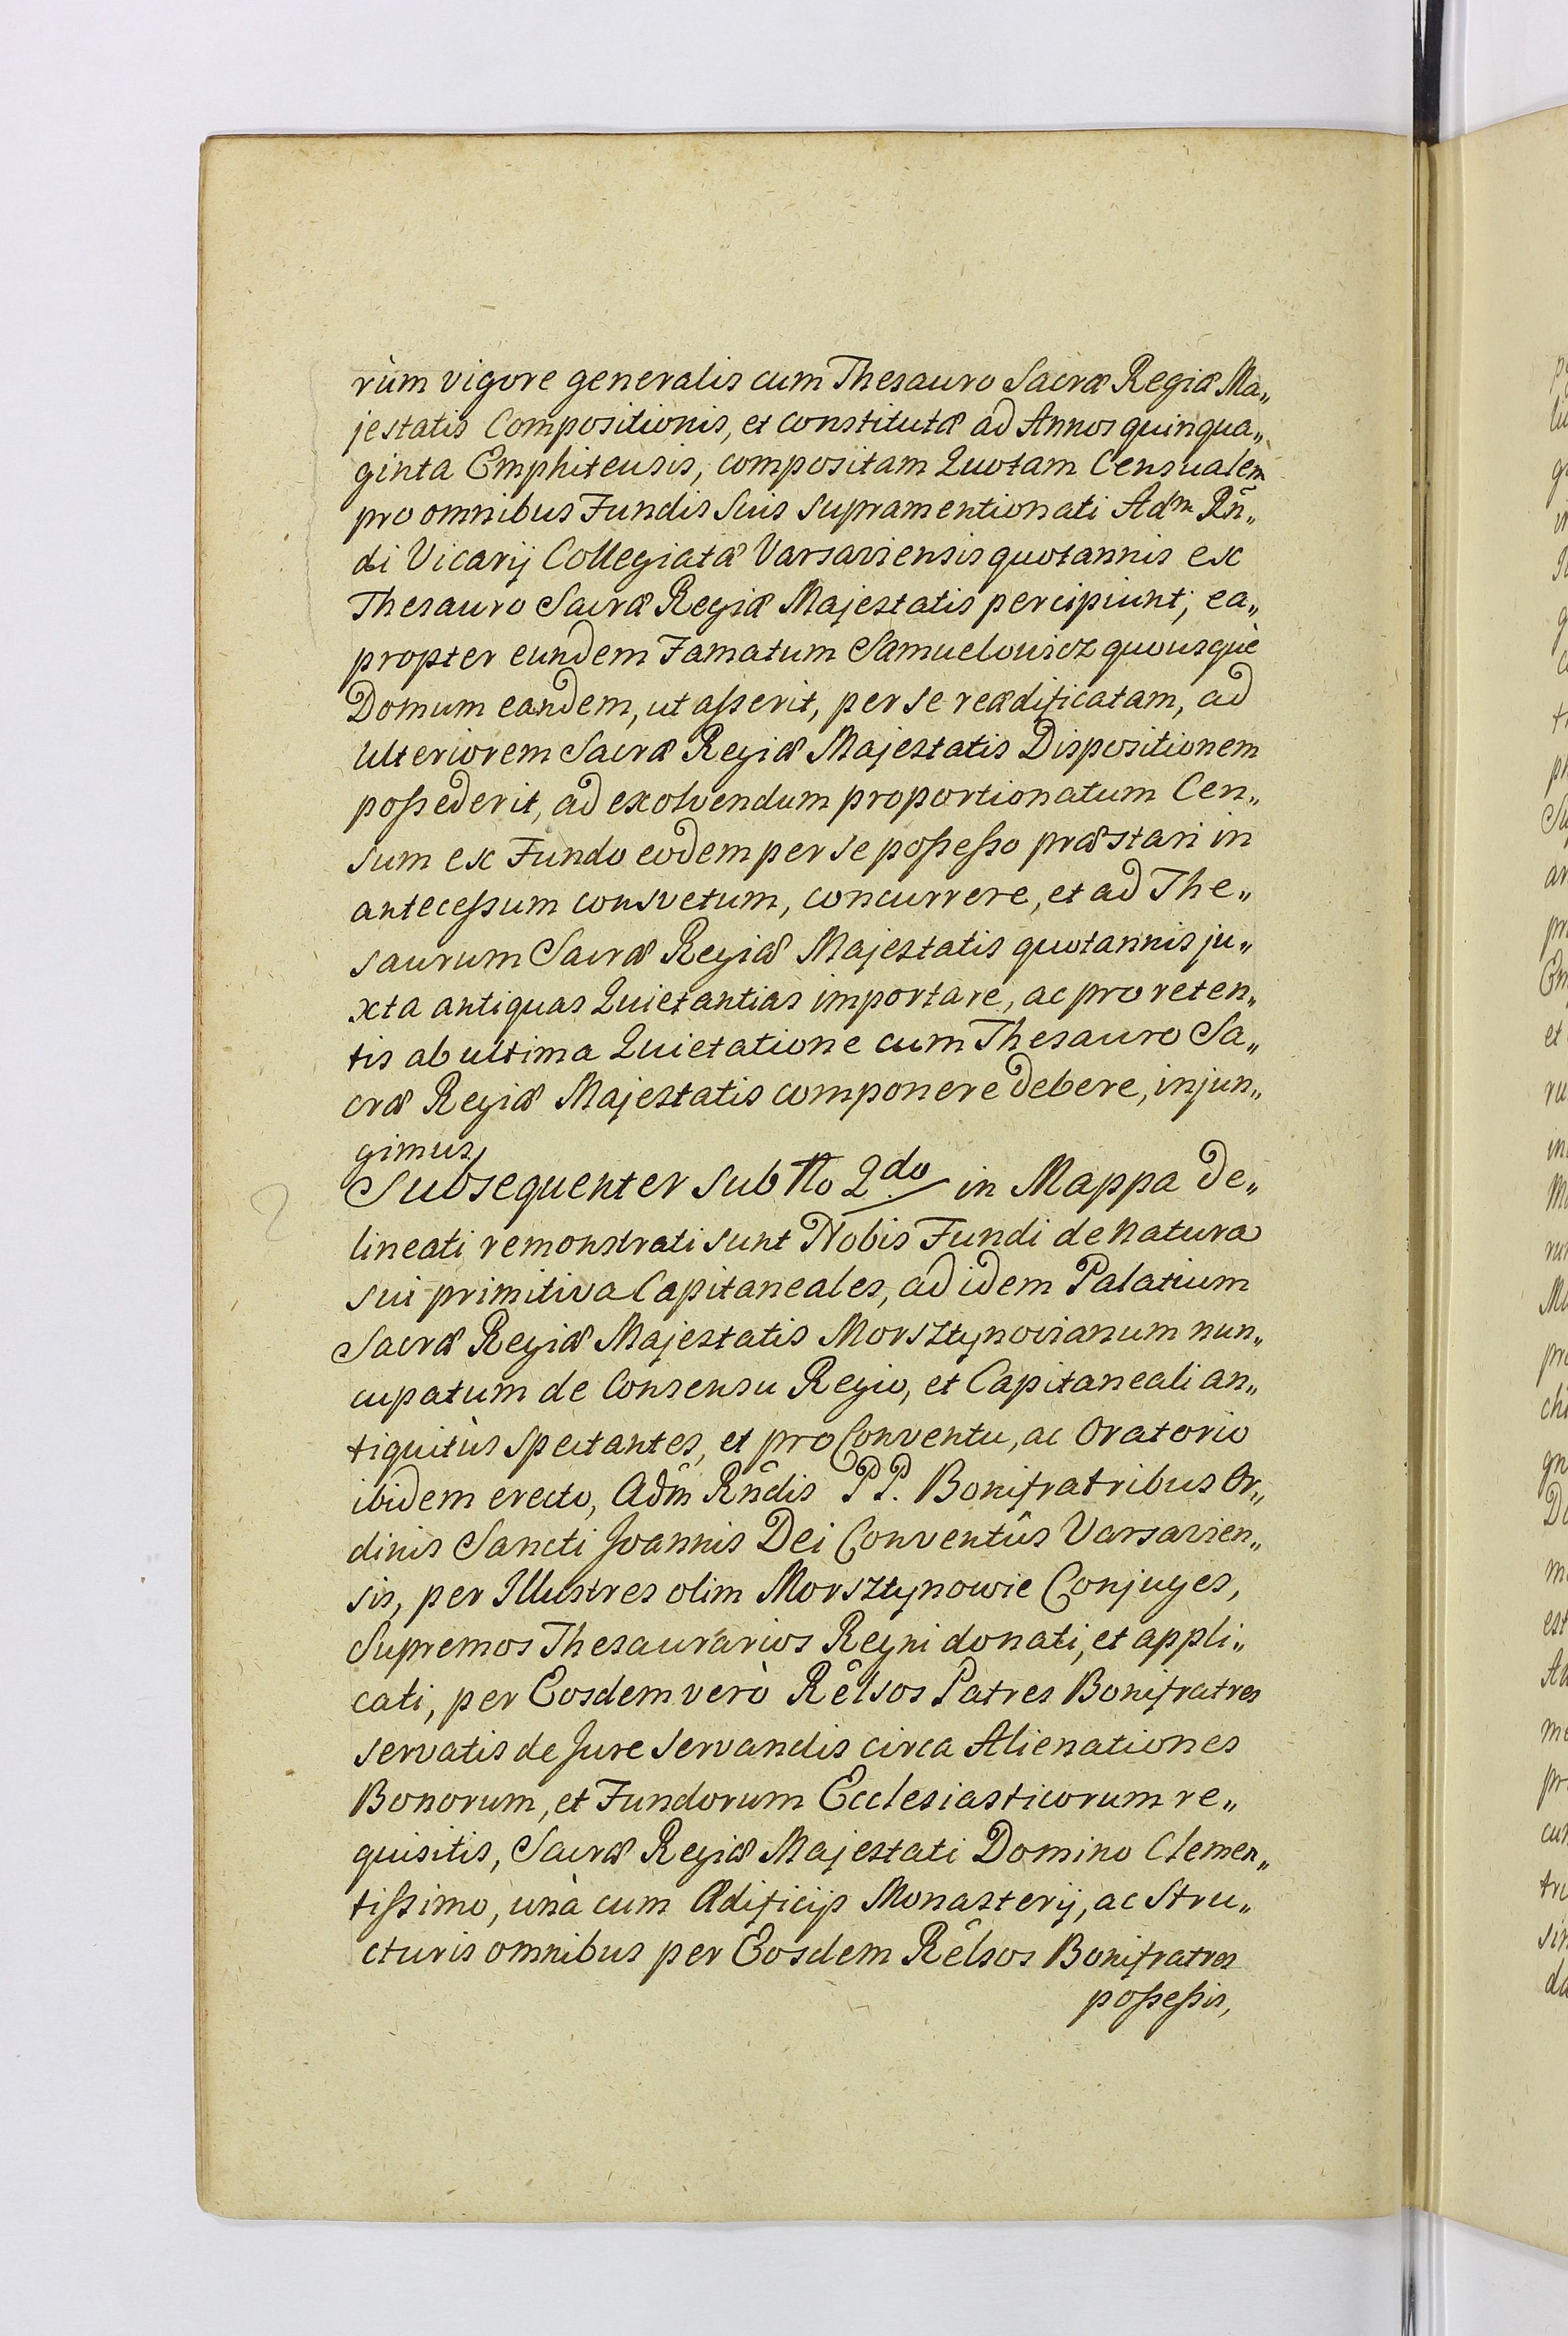 rùm vigore generalis cum Thesauro Sacræ Regiæ Ma„
jestatis Compositionis, et constitutæ ad Annos quinqua„
ginta Emphiteusis, compositam Quotam Censualem
pro omnibus Fundis suis supramentionati Adm Rn̄„
di Vicarij Collegiatæ Varsaviensis quotannis ex
Thesauro Sacræ Regiæ Majestatis percipiunt; ea„
propter eundem Famatum Samuelowicz quousquè
Domum eandem, ut aſserit, per se reædificatam, ad
Ulteriorem Sacræ Regiæ Majestatis Dispositionem
poſsederit, ad exolvendum proportionatum Cen„
sum ex Fundo eodem per se poſseſso præstari in
anteceſsum consvetum, concurrere, et ad The„
saurum Sacræ Regiæ Majestatis quotannis ju„
xta antiquas Quietantias importare, ac pro reten„
tis ab ultima Quietatione cum Thesauro Sa„
cræ Regiæ Majestatis componere debere, injun„
gimus,
Subsequenter sub No 2do in Mappa de„
2
lineati remonstrati sunt Nobis Fundi de natura
sui primitiva Capitaneales, ad idem Palatium
Sacræ Regiæ Majestatis Morsztynovianum nun„
cupatum de Consensu Regio, et Capitaneali an„
tiquitùs spectantes, et pro Conventu, ac Oratorio
ibidem erecto, Adm̂ Rn̂dis PP. Bonifratribus Or„
dinis Sancti Joannis Dei Conventûs Varsavien„
sis, per Illustres olim Morsztynowie Conjuges,
Supremos Thesaurarios Regni donati, et appli„
cati, per Eosdem verò Rêlsos Patres Bonifratres
servatis de Jure servandis circa Alienationes
Bonorum, et Fundorum Ecclesiasticorum re„
quisitis, Sacræ Regiæ Majestati Domino Clemen„
tiſsimo, unà cum Ædificijs Monasterij, ac Stru„
cturis omnibus per Eosdem Rêlsos Bonifratres
poſseſsis,